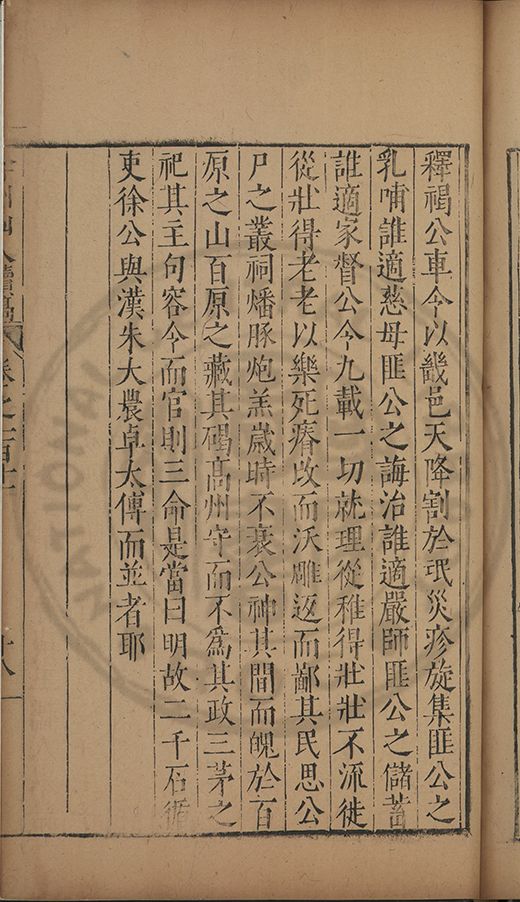 釋褐公車今以畿邑天降割於氓災疹旋集匪公之
乳哺誰適慈母匪公之誨治誰適嚴師匪公之儲蓄
誰適家督公今九載一切就理從稚得壯壯不流徙
從壯得老老以樂死瘠改而沃雕返而鄙其民思公
尸之叢祠燔豚炮羔歲時不衰公神其間而魄於百
原之山百原之藏其碣高州守而不為其政三茅之
祀其主句容今而官則三命是當曰明故二千石循
吏徐公與漢朱大農卓太傅而並者耶
卷之一百十
十八